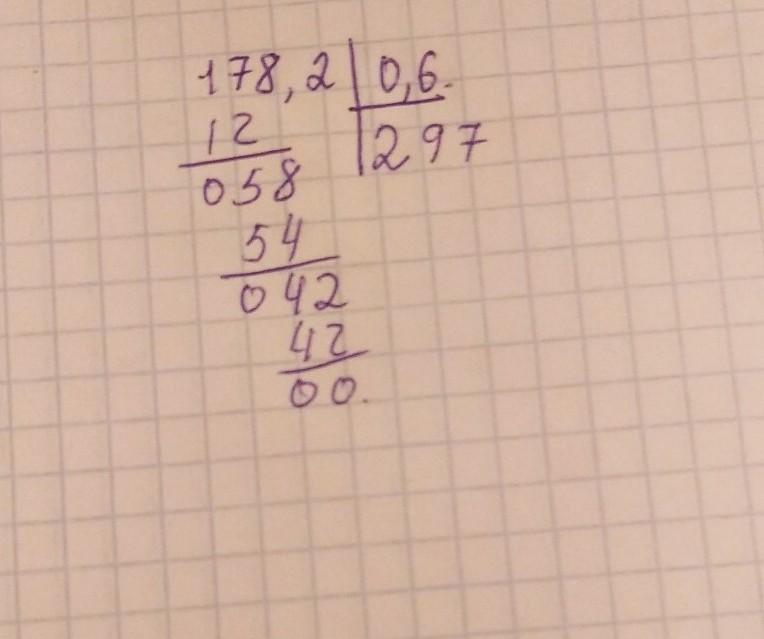 178,2 | 0,6.
12 | 297
058
54
042
42
00.